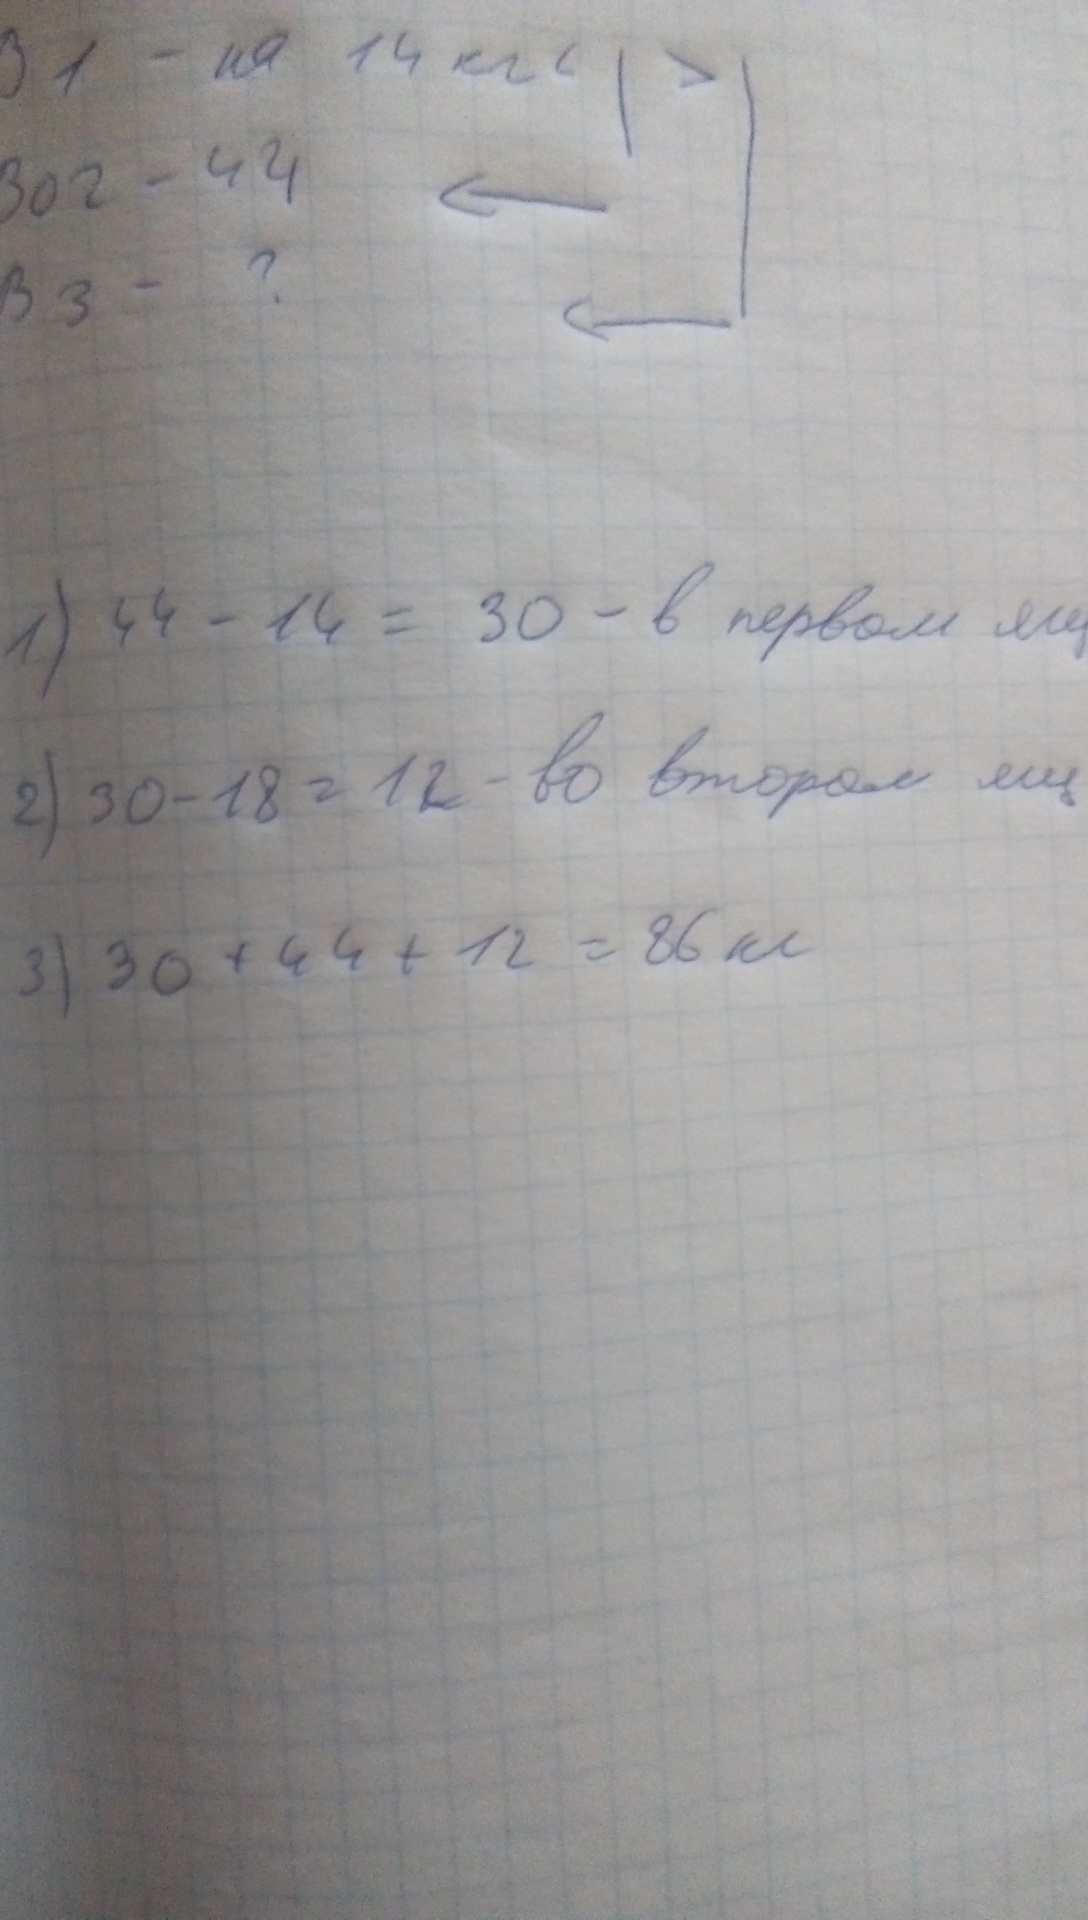 В 1 - на 14 кг < | >
Во 2 - 44
В 3 - ?
1) 44 - 14 = 30 - в первом ящ
2) 30 - 18 = 12 - во втором ящ
3) 30 + 44 + 12 = 86 кг